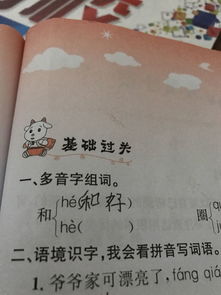 基础过关
一、多音字组词。
和 hé(和好)
hè( ) 圈
二、语境识字，我会看拼音写词语。
1. 爷爷家可漂亮了，fáng